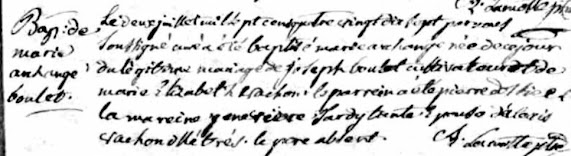 Bap: de
marie
archange
boulet.
Le deux juillet mil sept cent quatre vingt dix sept par nous
soussigné a été baptisé marie archange née de ce jour
du légitime mariage de joseph boulet cultivateur et de
marie Elizabeth vachon. le parrein a été pierre
la mareine genevieve Tardy tante
vachon illétrés. le pere absent.